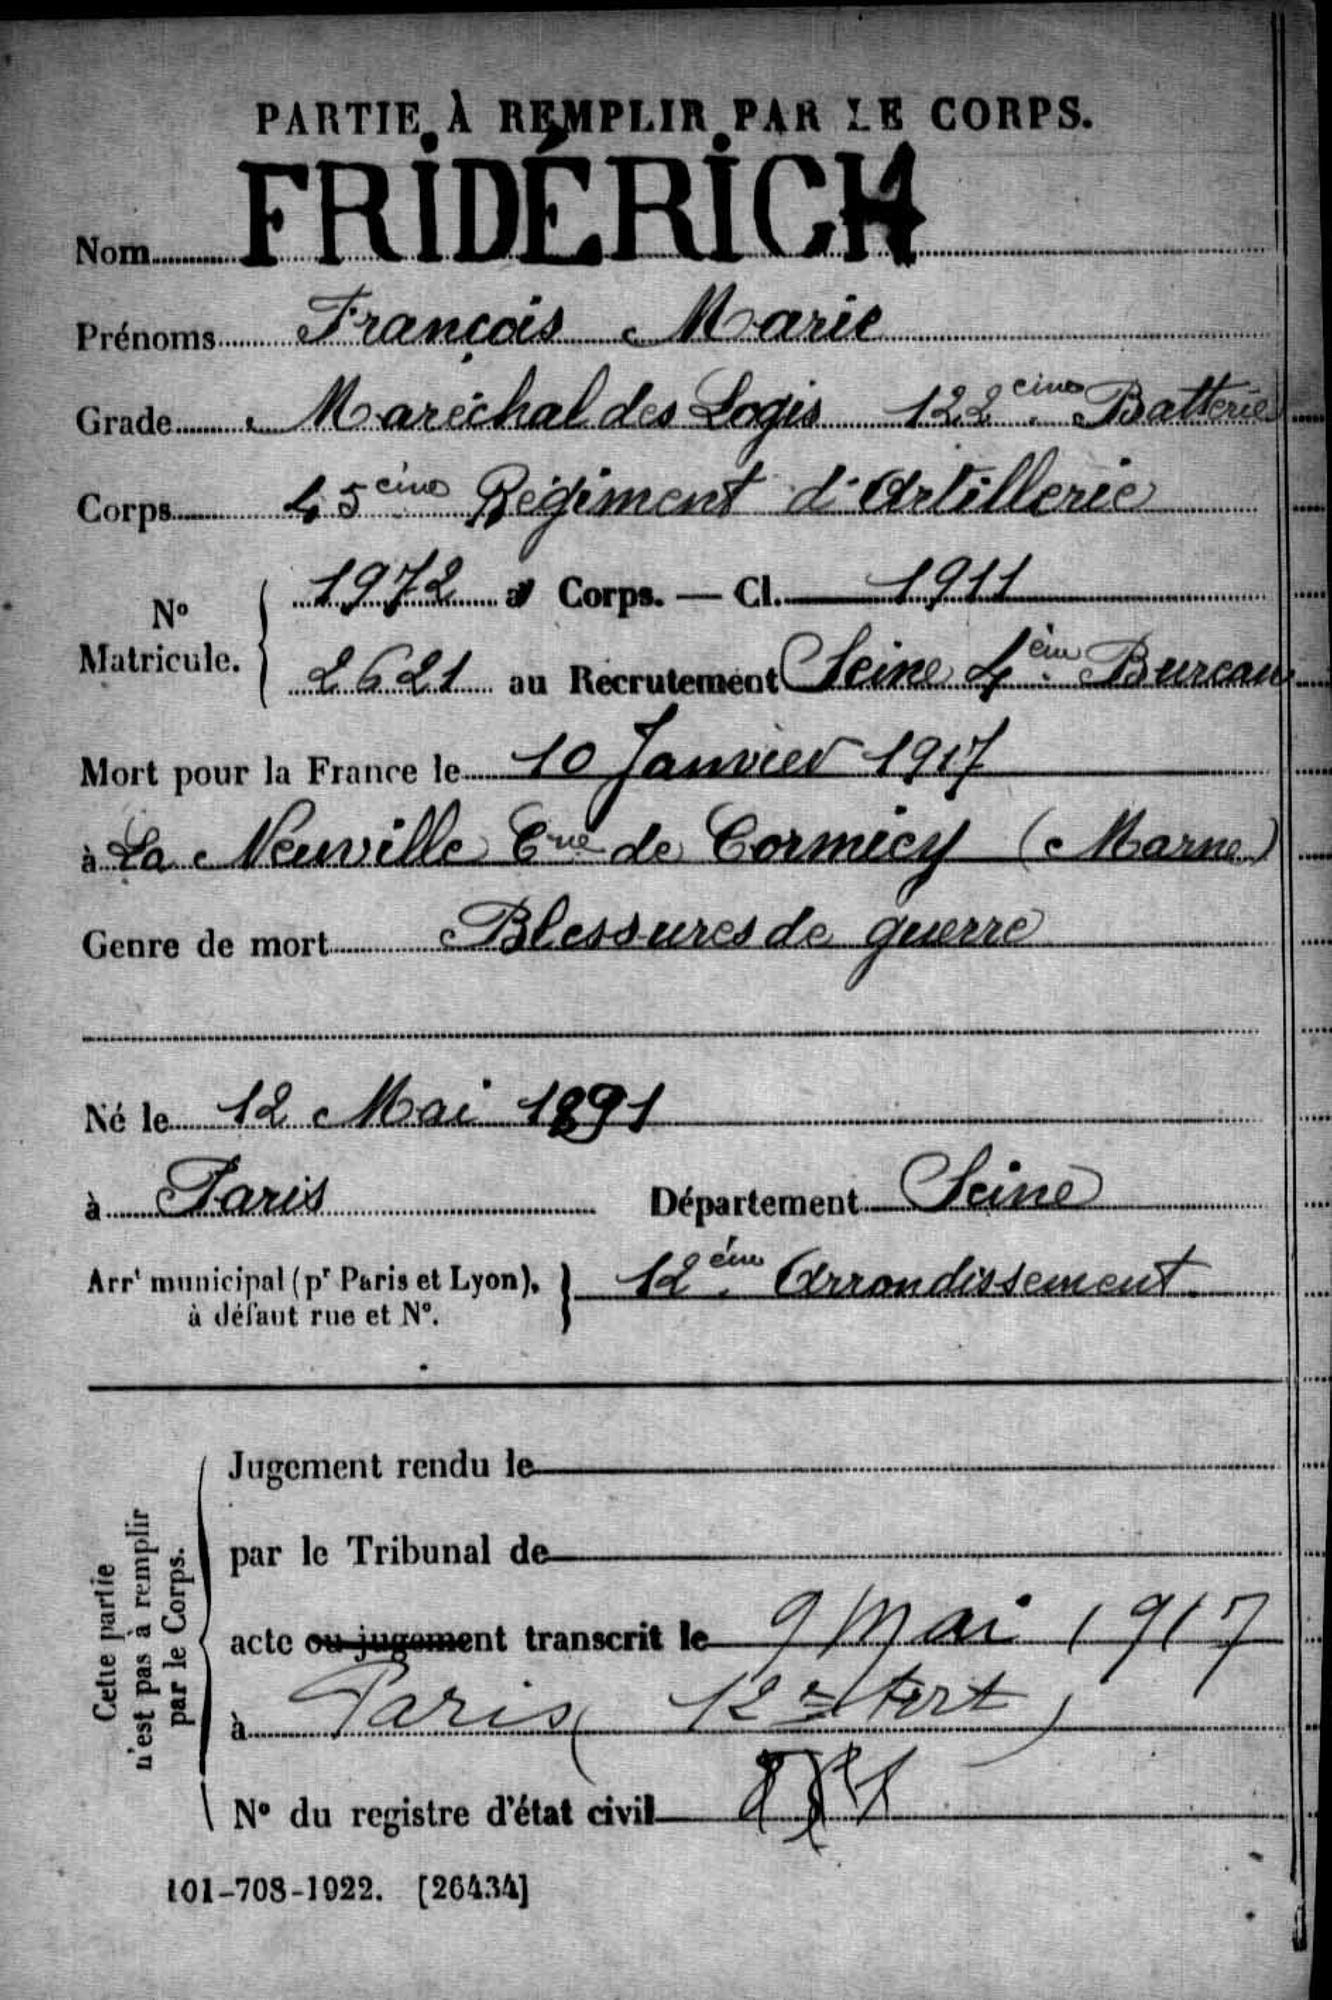 PARTIE À REMPLIR PAR LE CORPS.
Nom FRIDÉRICH
Prénoms François Marie
Grade Maréchal des Logis 122ème Batterie
Corps 45ème Régiment d'Artillerie
N° Matricule.
1972 au Corps. — Cl. 1911
2621 au Recrutement Seine 4ème Bureau
Mort pour la France le 10 Janvier 1917
à La Neuville Cne de Cormicy (Marne)
Genre de mort Blessures de guerre
Né le 12 Mai 1891
à Paris Département Seine
Arrt municipal (pr Paris et Lyon), 12ème Arrondissement
à défaut rue et N°.
Cette partie n'est pas à remplir par le Corps.
Jugement rendu le
par le Tribunal de
acte ou jugement transcrit le 9 Mai 1917
à Paris (12e Arrt)
N° du registre d'état civil
101-708-1922. [26434]